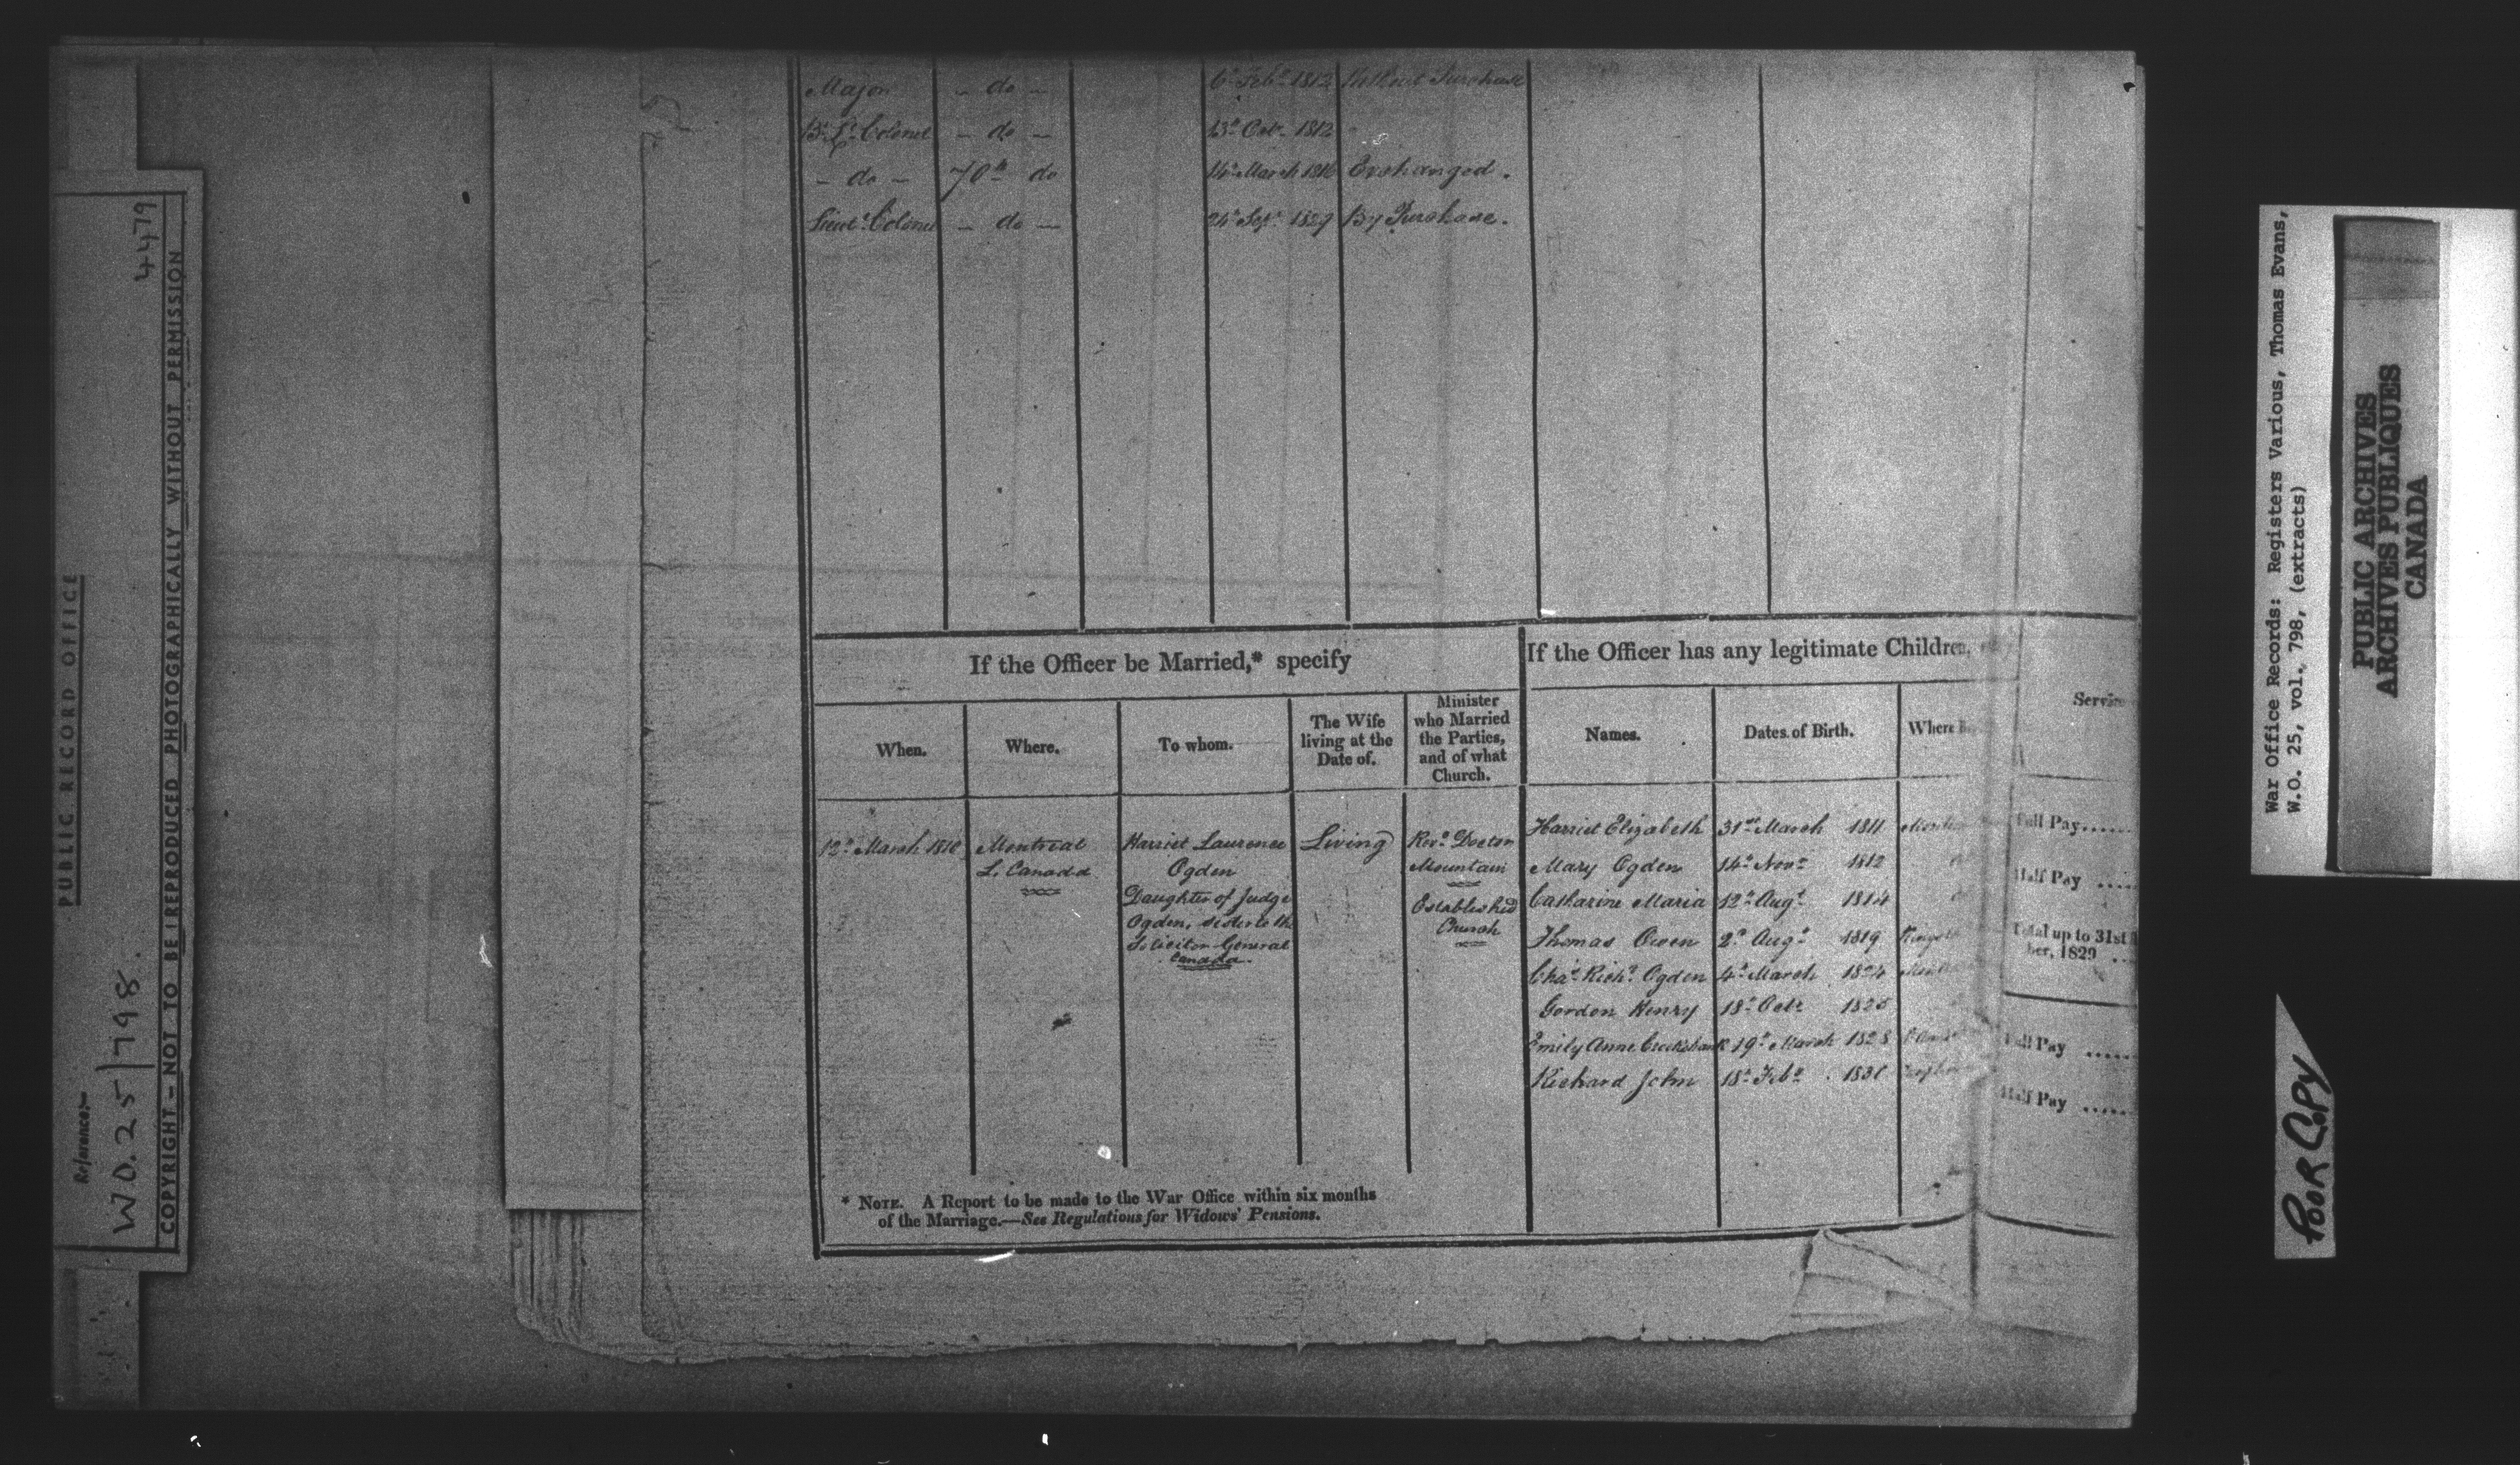 Major - do - 6th Feby 1812 Without Purchase
Bt. Lt. Colonel - do - 13th Octr 1812
- do - 70th do 14th March 1816 Exchanged.
Lieut. Colonel - do - 24th Sept. 1829 By Purchase.
If the Officer be Married,* specify
When.
Where.
To whom.
The Wife
living at the
Date of.
Minister
who Married
the Parties,
and of what
Church.
12th March 1810
Montreal
L. Canada
Harriet Laurence
Ogden
Daughter of Judge
Ogden, sister to the
Solicitor General
Canada.
Living
Revd. Doctor
Mountain
Established
Church
If the Officer has any legitimate Children,
Names. Dates of Birth. Where
Harriet Elizabeth 31st March 1811
Mary Ogden 14th Novr 1812
Catharine Maria 12th Augt. 1814
Thomas Owen 2d Augt 1819
Chas. Richd. Ogden 4th March 1824
Gordon Henry 18th Octr 1825
Emily Anne Crookshank 19th March 1828
Richard John 18th Feby 1831
* NOTE. A Report to be made to the War Office within six months
of the Marriage.—See Regulations for Widows' Pensions.
Full Pay......
Half Pay ....
Total up to 31st
ber, 1829 ..
Full Pay .....
Half Pay .....
PUBLIC RECORD OFFICE
Reference:-
W O. 25/798.
4479
COPYRIGHT - NOT TO BE REPRODUCED PHOTOGRAPHICALLY WITHOUT PERMISSION
War Office Records: Registers Various, Thomas Evans,
W.O. 25, vol. 798, (extracts)
PUBLIC ARCHIVES
ARCHIVES PUBLIQUES
CANADA
POOR COPY